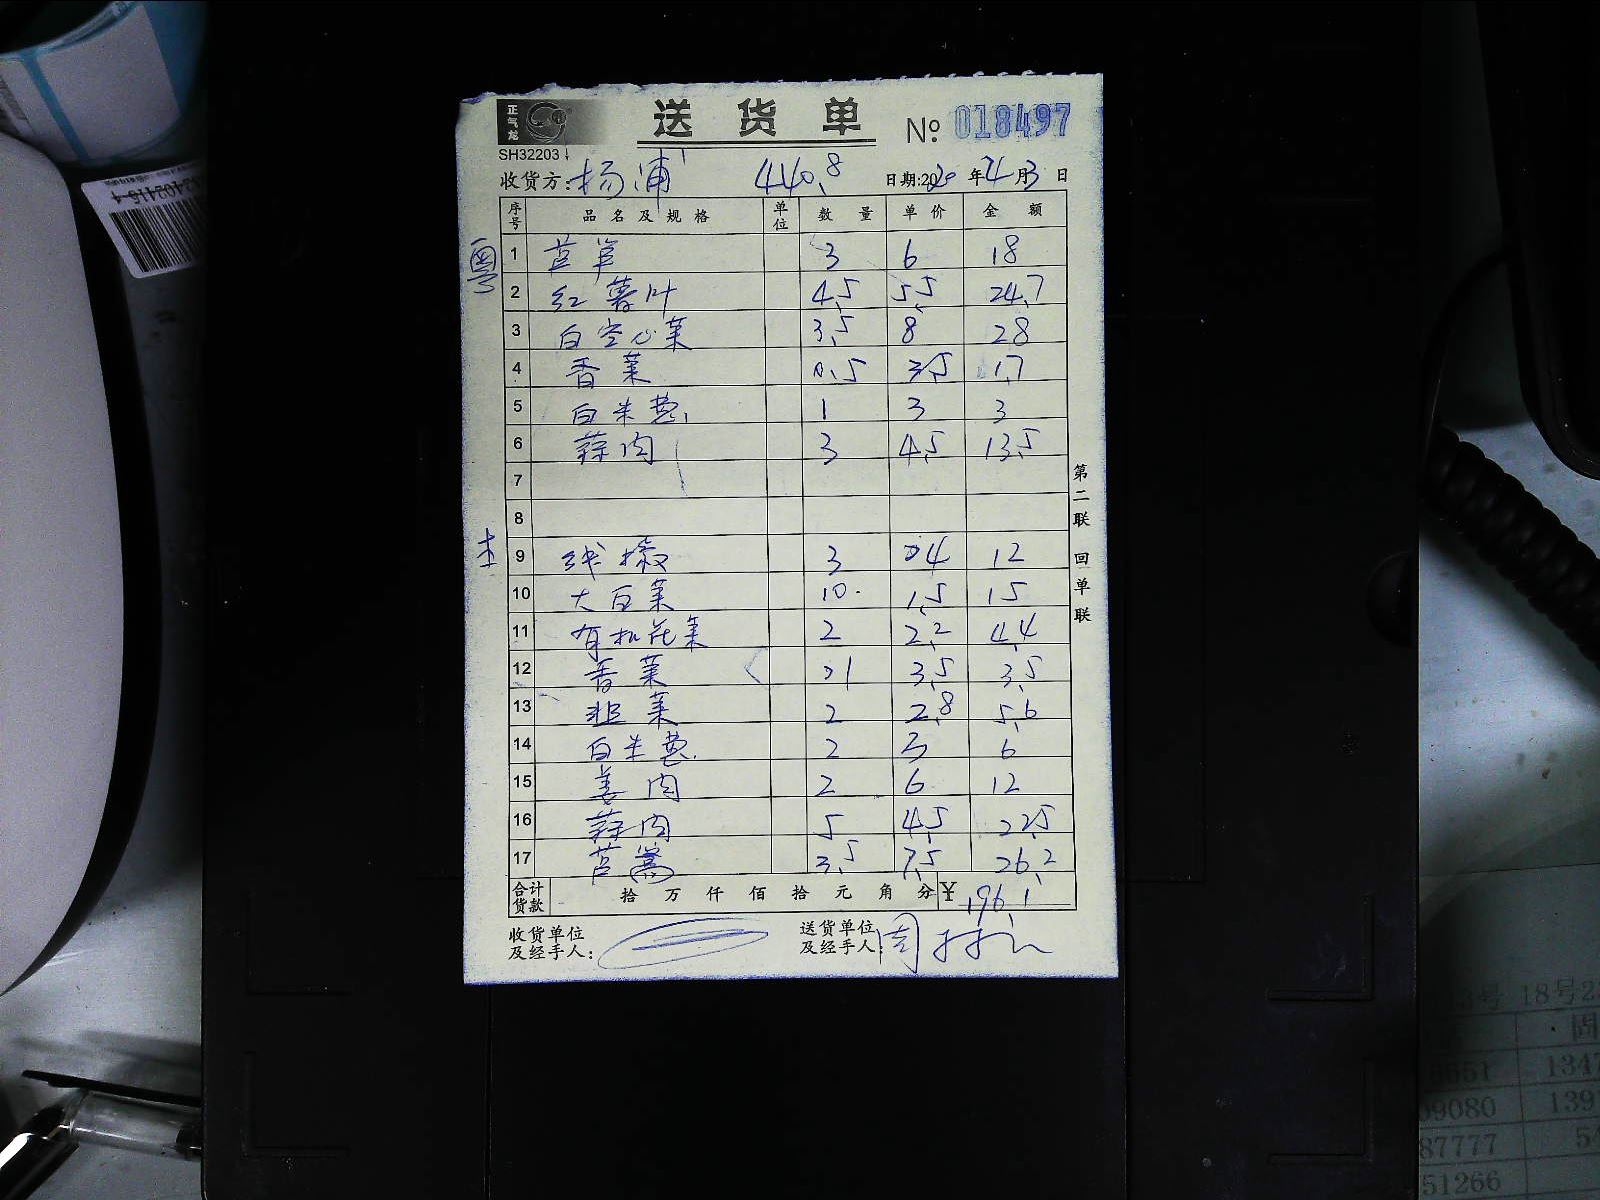 正气龙
送货单
№ 018497
SH32203
收货方: 杨浦 440.8 日期:2020 年 4 月 3 日
序号 品名及规格 单位 数量 单价 金额
粤
1 3 6 18
2 红薯叶 4.5 5.5 24.7
3 白空心菜 3.5 8 28
4 香菜 0.5 3.5 1.7
5 白米葱 1 3 3
6 蒜肉 3 4.5 13.5
7
8
9 线椒 3 4 12
10 大豆菜 10 1.5 15
11 有机花菜 2 2.2 4.4
12 香菜 1 3.5 3.5
13 韭菜 2 2.8 5.6
14 白米葱 2 3 6
15 姜肉 2 6 12
16 蒜肉 5 4.5 22.5
17 芦蒿 3.5 7.5 26.2
合计货款 拾 万 仟 佰 拾 元 角 分 ¥ 196.1
收货单位及经手人:
送货单位及经手人: 周
第二联 回单联
18号
固
1347
09080 1391
87777 54
51266